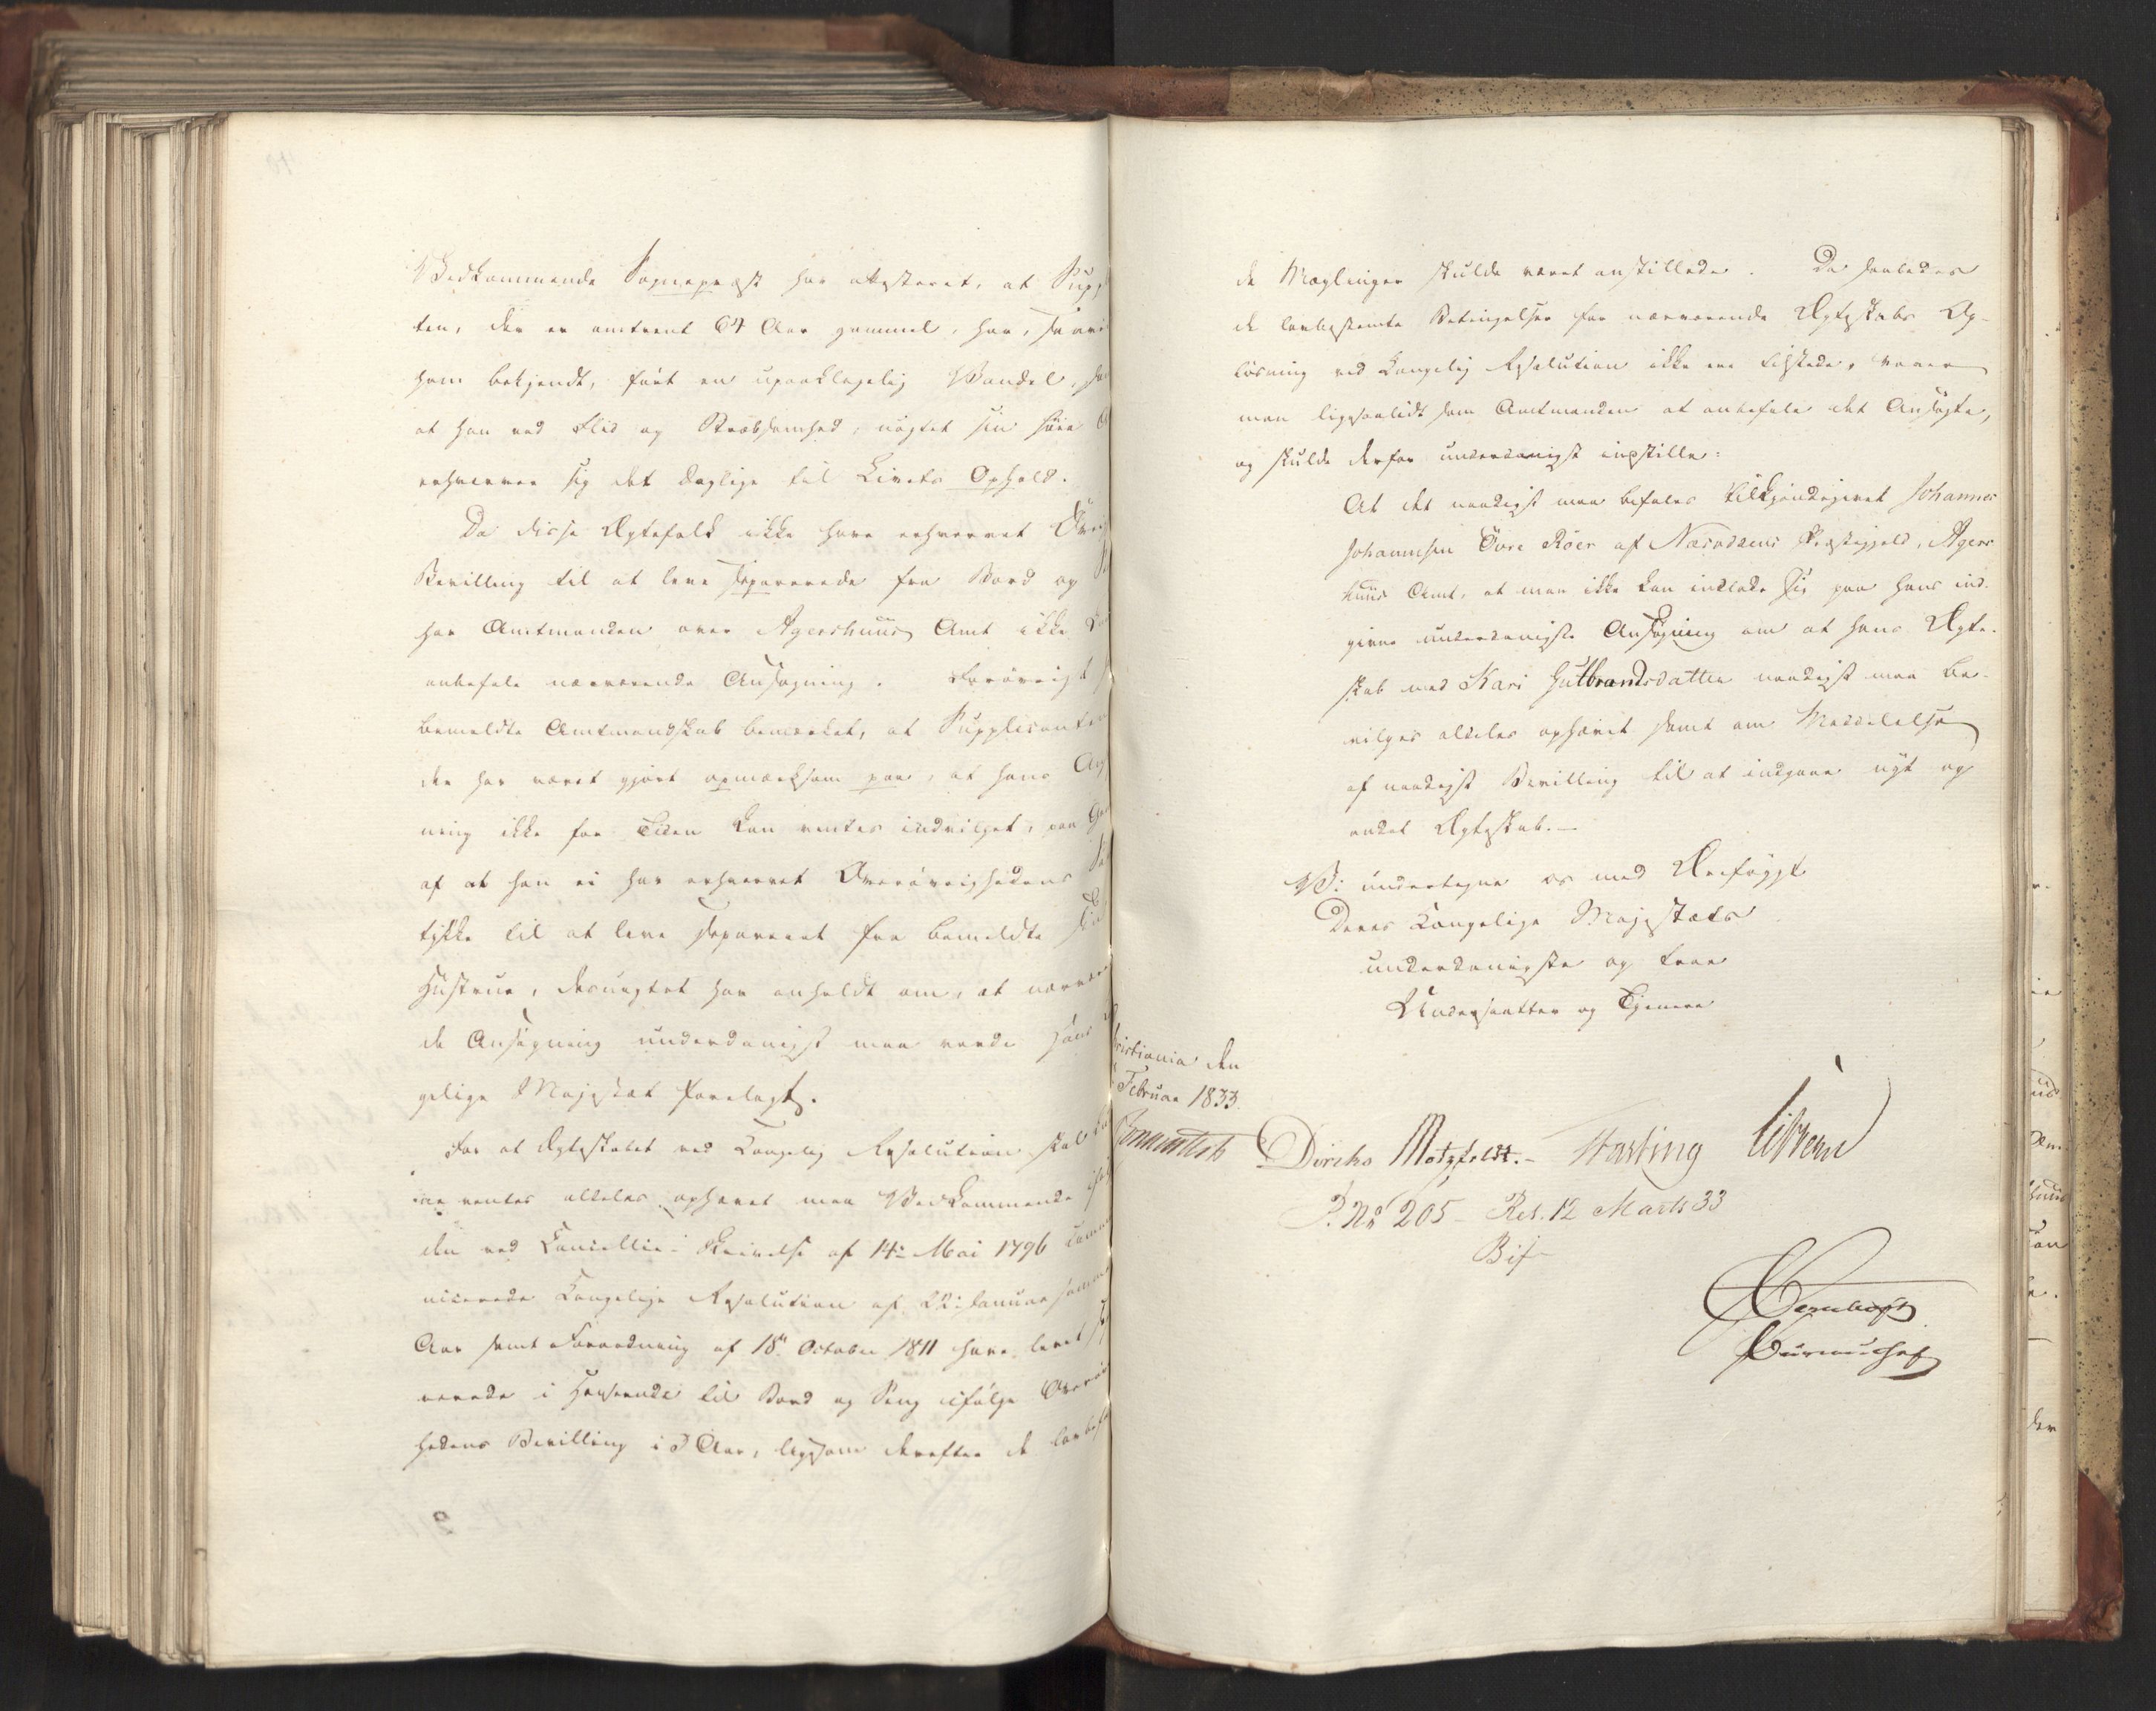 Vedkommende Sognepræst har attesteret, at Supp
ten, der er omtrent 64 Aar gammel, har,
ham bekjendt, ført en upaaklagelig Vandel,
at han ved Flid og Stræbsomhed, uagtet sin høie
erhverver sig det daglige til Livets Ophold.
Da disse Ægtefolk ikke have erhvervet
Bevilling til at leve separerede fra Bord og
har Amtmanden over Agershuus Amt ikke
anbefale nærværende Ansøgning. Forøvrigt
bemeldte Amtmandskab bemærket, at Supplicanten
der har været gjort opmærksom paa, at hans
ning ikke for Tiden kan ventes indvilget, paa
af at han ei har erhvervet Overøvrighedens
tykke til at leve separeret fra bemeldte
Hustrue, desuagtet har anholdt om, at nærvæ
de Ansøgning underdanigst maa vorde
gelige Majestæt forelagt.
For at Ægteskabet ved Kongelig Resolution skal
ventes aldeles ophævet maa Vedkommende
den ved Cancellie-Skrivelse af 14de Mai 1796
nicerede Kongelige Resolution af Januar
Aar samt Forordning af 18de October 1811 have levet
rerede i Henseende til Bord og Seng ifølge
hedens Bevilling i 3 Aar, ligesom derefter de
de Mæglinger skulde været anstillede. Da saaledes
de lovbestemte Betingelser for nærværende Ægteskabs Op-
løsning ved Kongelig Resolution ikke ere tilstede, vover
man ligesaalidt som Amtmanden at anbefale det Ansøgte,
og skulde derfor underdanigst indstille:
At det naadigst maa befales tilkjendegivet Johannes
Johannesen Øvre Röer af Næsoddens Præstegjeld, Agers
huus Amt, at man ikke kan indlade sig paa hans ind-
givne underdanigste Ansøgning om at hans Ægte-
skab med Kari Gulbrandsdatter naadigst maa be-
vilges aldeles ophævet samt om Meddelelse
af naadigst Bevilling til at indgaae nyt og
andet Ægteskab.—
Vi undertegne os med Ærefrygt
Deres Kongelige Majestæts
underdanigste og troe
Undersaatter og Tjenere
ristiania den
Februar 1833.
Diriks Motzfeldt.- Hasting
P. No 205 - Res. 12 Marts 33
Bif-